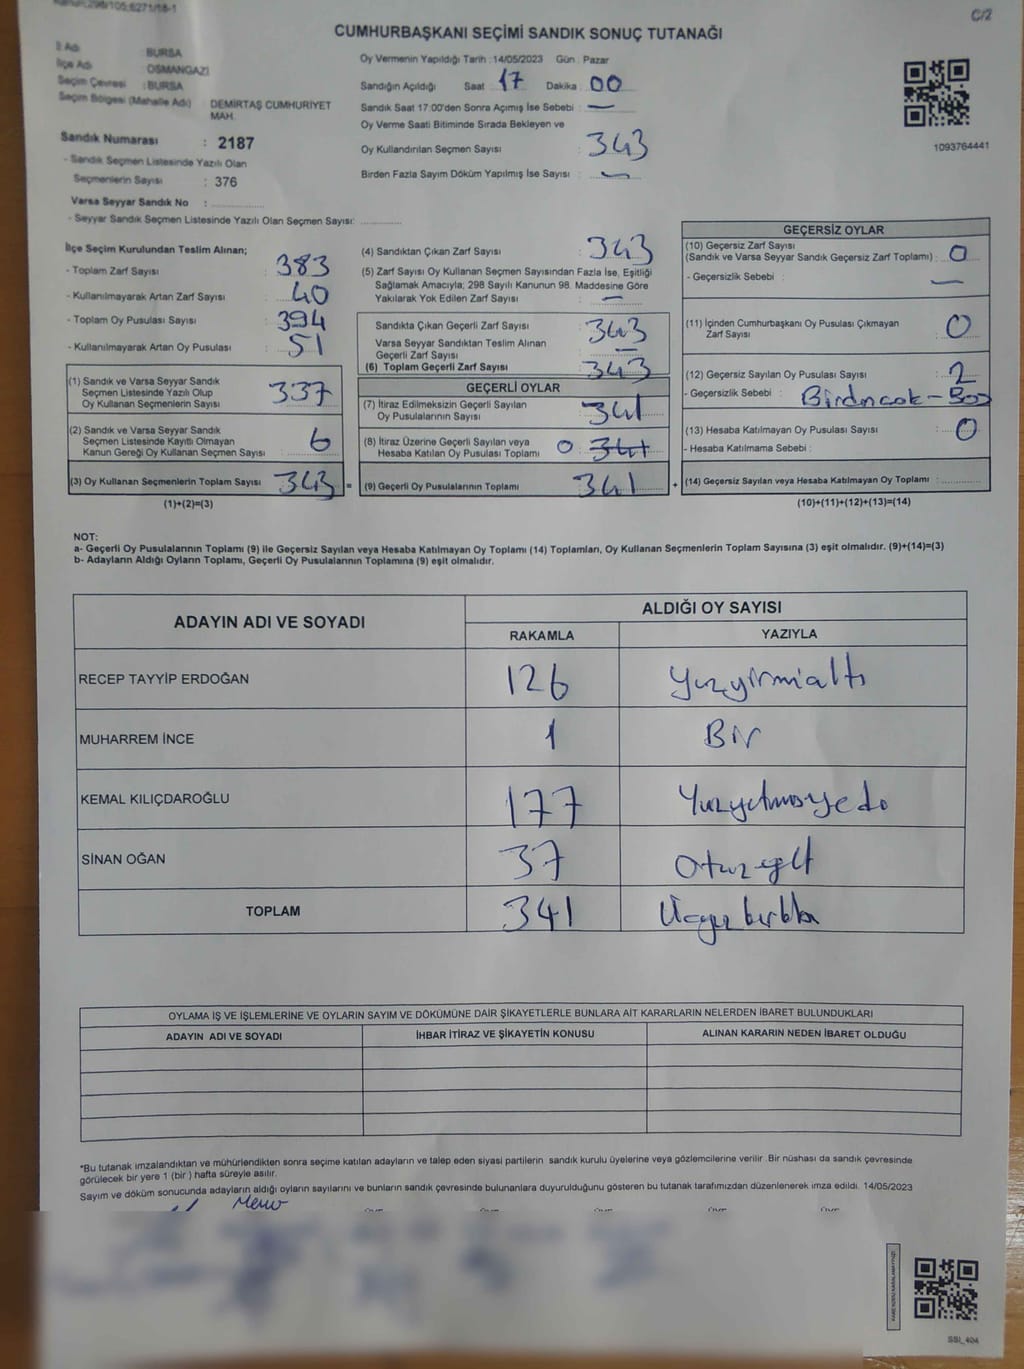 Kanun:298/105;6271/18-1
C/2
CUMHURBAŞKANI SEÇİMİ SANDIK SONUÇ TUTANAĞI
İl Adı : BURSA
İlçe Adı : OSMANGAZİ
Seçim Çevresi : BURSA
Seçim Bölgesi (Mahalle Adı) : DEMİRTAŞ CUMHURİYET MAH.
Sandık Numarası : 2187
- Sandık Seçmen Listesinde Yazılı Olan
Seçmenlerin Sayısı : 376
Varsa Seyyar Sandık No :
- Seyyar Sandık Seçmen Listesinde Yazılı Olan Seçmen Sayısı:
Oy Vermenin Yapıldığı Tarih : 14/05/2023 Gün : Pazar
Sandığın Açıldığı Saat : 17 Dakika : 00
Sandık Saat 17:00'den Sonra Açımış İse Sebebi : —
Oy Verme Saati Bitiminde Sırada Bekleyen ve
Oy Kullandırılan Seçmen Sayısı : 343
Birden Fazla Sayım Döküm Yapılmış İse Sayısı : —
1093764441
İlçe Seçim Kurulundan Teslim Alınan;
- Toplam Zarf Sayısı : 383
- Kullanılmayarak Artan Zarf Sayısı : 40
- Toplam Oy Pusulası Sayısı : 394
- Kullanılmayarak Artan Oy Pusulası : 51
(1) Sandık ve Varsa Seyyar Sandık
Seçmen Listesinde Yazılı Olup
Oy Kullanan Seçmenlerin Sayısı : 337
(2) Sandık ve Varsa Seyyar Sandık
Seçmen Listesinde Kayıtlı Olmayan
Kanun Gereği Oy Kullanan Seçmen Sayısı : 6
(3) Oy Kullanan Seçmenlerin Toplam Sayısı : 343 =
(1)+(2)=(3)
(4) Sandıktan Çıkan Zarf Sayısı : 343
(5) Zarf Sayısı Oy Kullanan Seçmen Sayısından Fazla İse, Eşitliği
Sağlamak Amacıyla; 298 Sayılı Kanunun 98. Maddesine Göre
Yakılarak Yok Edilen Zarf Sayısı : —
Sandıkta Çıkan Geçerli Zarf Sayısı : 343
Varsa Seyyar Sandıktan Teslim Alınan
Geçerli Zarf Sayısı : —
(6) Toplam Geçerli Zarf Sayısı : 343
GEÇERLİ OYLAR
(7) İtiraz Edilmeksizin Geçerli Sayılan
Oy Pusulalarının Sayısı : 341
(8) İtiraz Üzerine Geçerli Sayılan veya
Hesaba Katılan Oy Pusulası Toplamı : 0 341
(9) Geçerli Oy Pusulalarının Toplamı : 341 +
GEÇERSİZ OYLAR
(10) Geçersiz Zarf Sayısı
(Sandık ve Varsa Seyyar Sandık Geçersiz Zarf Toplamı) : 0
- Geçersizlik Sebebi : —
(11) İçinden Cumhurbaşkanı Oy Pusulası Çıkmayan
Zarf Sayısı : 0
(12) Geçersiz Sayılan Oy Pusulası Sayısı : 2
- Geçersizlik Sebebi :
(13) Hesaba Katılmayan Oy Pusulası Sayısı : 0
- Hesaba Katılmama Sebebi :
(14) Geçersiz Sayılan veya Hesaba Katılmayan Oy Toplamı :
(10)+(11)+(12)+(13)=(14)
NOT:
a- Geçerli Oy Pusulalarının Toplamı (9) ile Geçersiz Sayılan veya Hesaba Katılmayan Oy Toplamı (14) Toplamları, Oy Kullanan Seçmenlerin Toplam Sayısına (3) eşit olmalıdır. (9)+(14)=(3)
b- Adayların Aldığı Oyların Toplamı, Geçerli Oy Pusulalarının Toplamına (9) eşit olmalıdır.
ADAYIN ADI VE SOYADI
ALDIĞI OY SAYISI
RAKAMLA YAZIYLA
RECEP TAYYİP ERDOĞAN 126 Yüzyirmialtı
MUHARREM İNCE 1 Bir
KEMAL KILIÇDAROĞLU 177 Yüzyetmişyedi
SİNAN OĞAN 37 Otuzyedi
TOPLAM 341 Üçyüzkırkbir
OYLAMA İŞ VE İŞLEMLERİNE VE OYLARIN SAYIM VE DÖKÜMÜNE DAİR ŞİKAYETLERLE BUNLARA AİT KARARLARIN NELERDEN İBARET BULUNDUKLARI
ADAYIN ADI VE SOYADI İHBAR İTİRAZ VE ŞİKAYETİN KONUSU ALINAN KARARIN NEDEN İBARET OLDUĞU
*Bu tutanak imzalandıktan ve mühürlendikten sonra seçime katılan adayların ve talep eden siyasi partilerin sandık kurulu üyelerine veya gözlemcilerine verilir. Bir nüshası da sandık çevresinde
görülecek bir yere 1 (bir) hafta süreyle asılır.
Sayım ve döküm sonucunda adayların aldığı oyların sayılarını ve bunların sandık çevresinde bulunanlara duyurulduğunu gösteren bu tutanak tarafımızdan düzenlenerek imza edildi. 14/05/2023
SSI_404